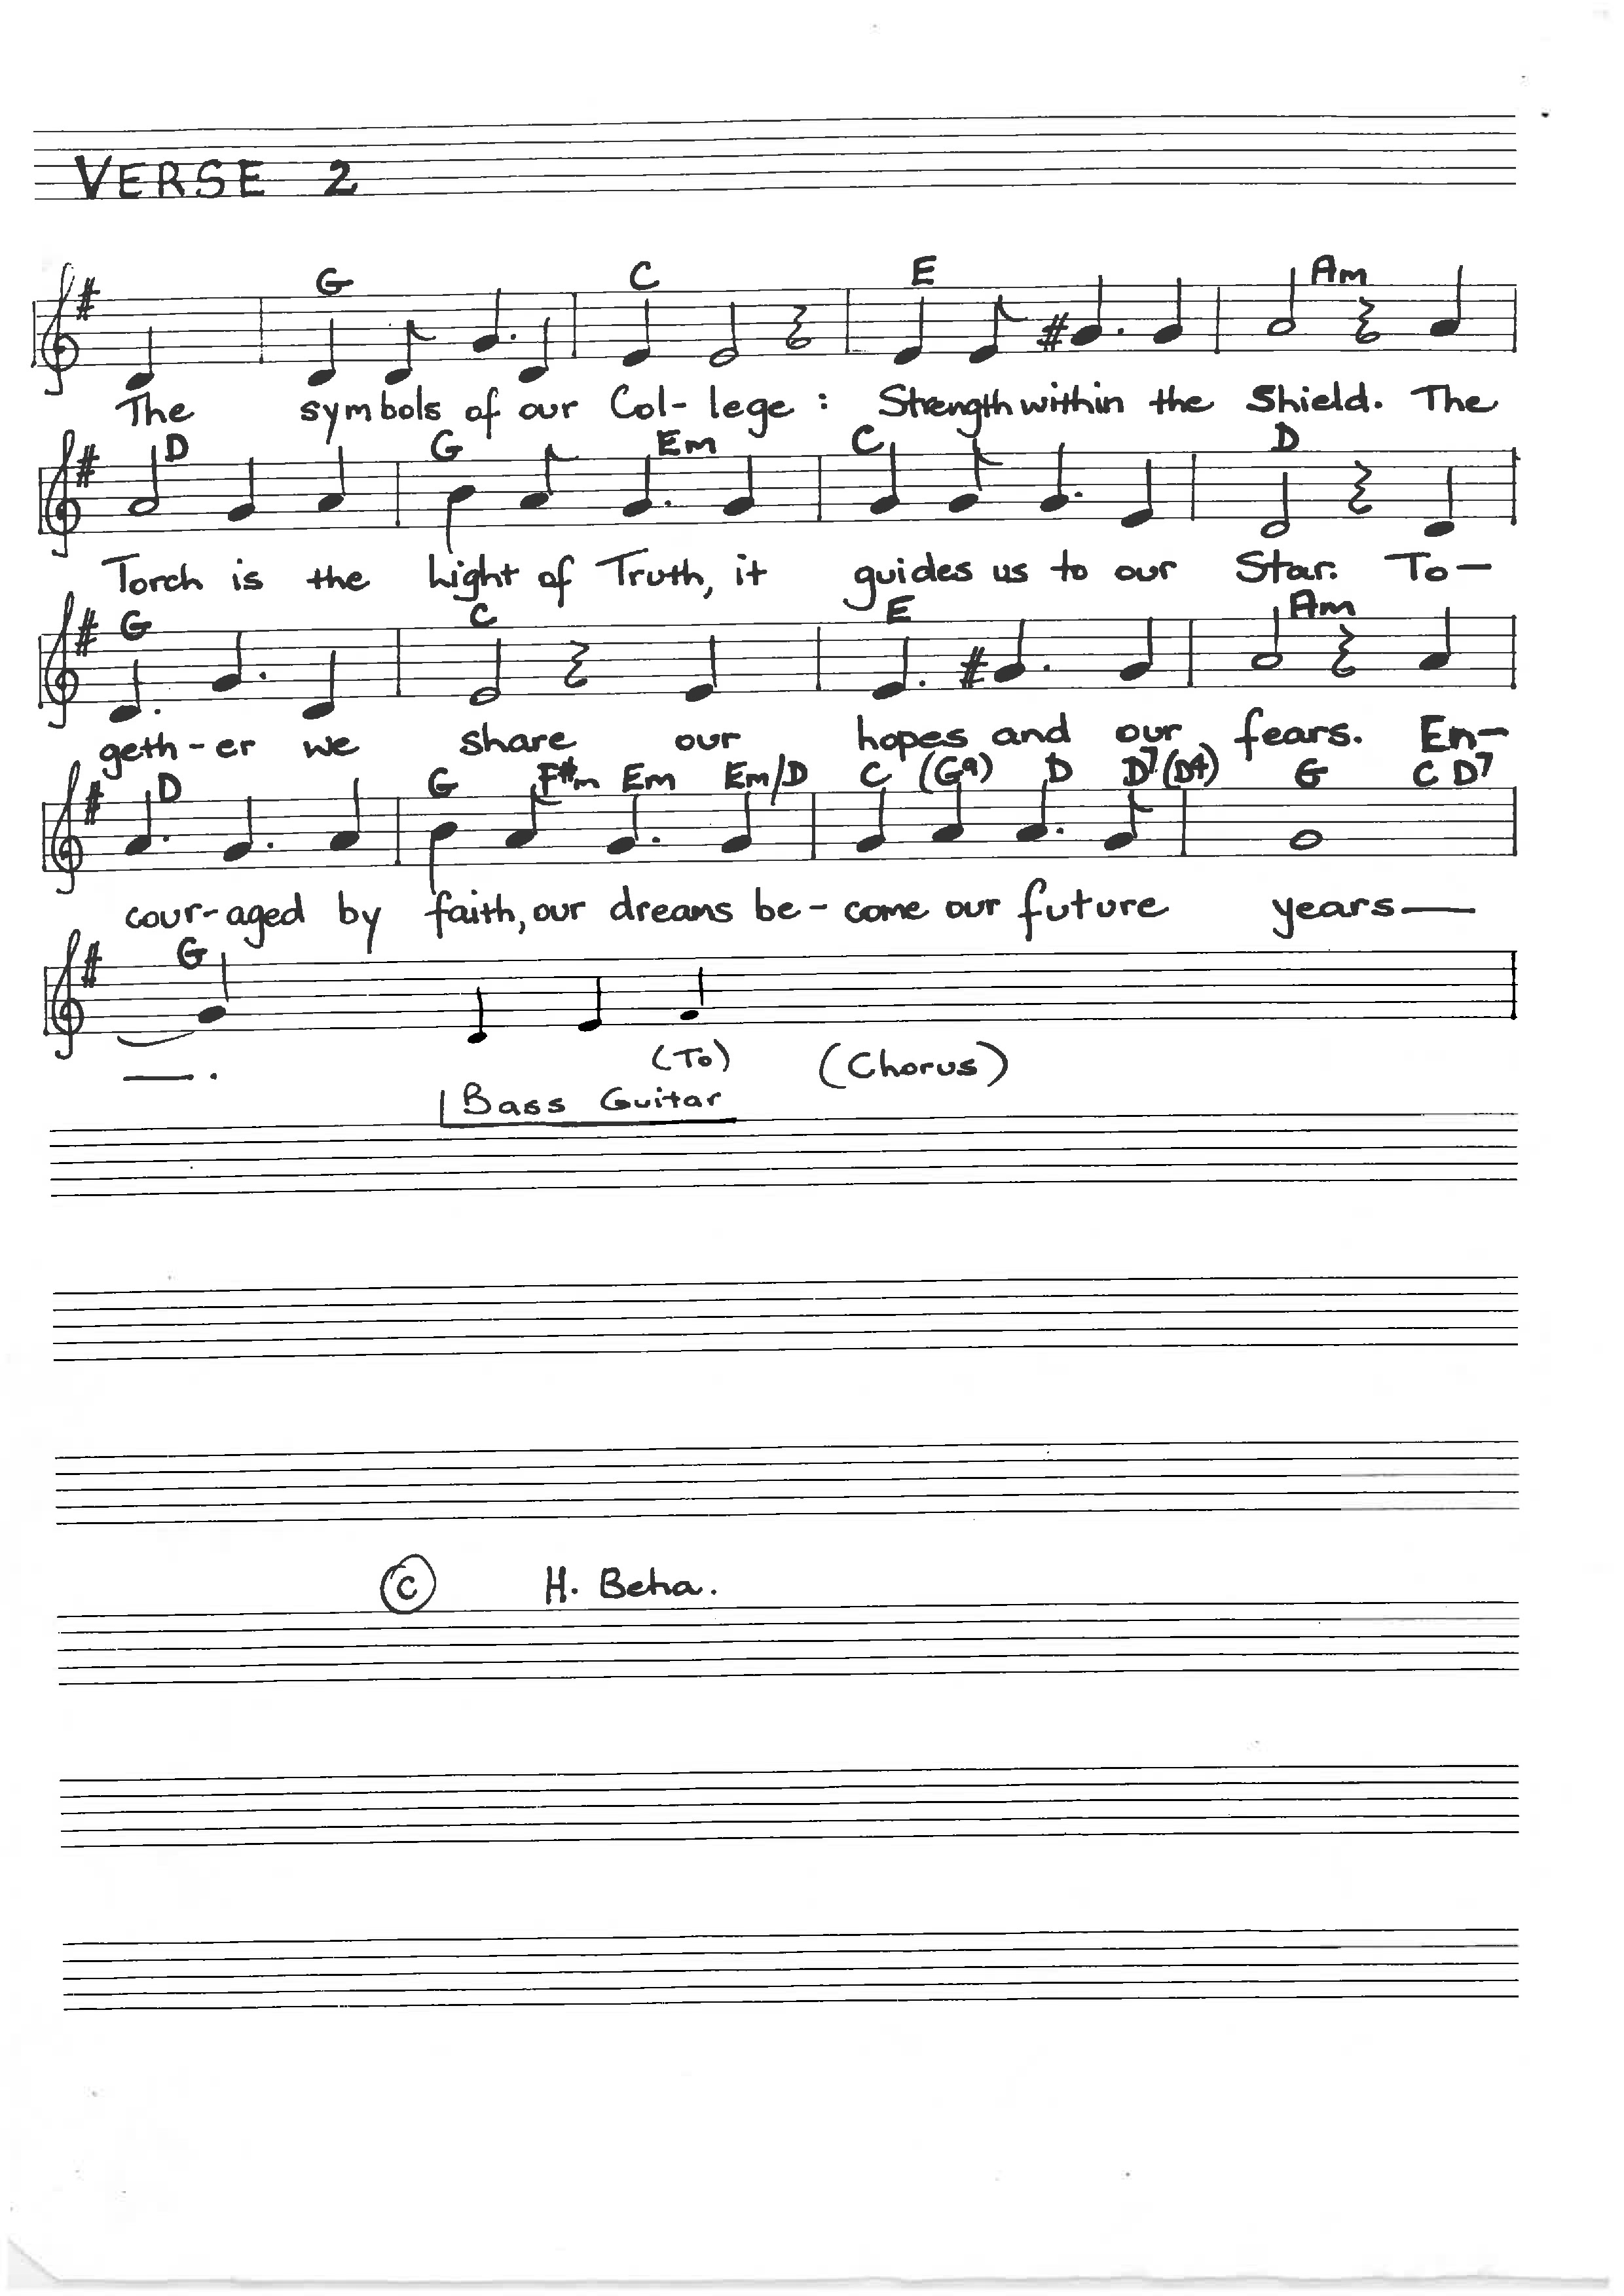 VERSE 2
G C E Am
The symbols of our Col- lege : Strength within the Shield. The
D G Em C D
Torch is the Light of Truth, it guides us to our Star. To-
G C E Am
geth-er we share our hopes and our fears. En-
D G F#m Em Em/D C (G9) D D7(D4) G C D7
cour-aged by faith, our dreams be- come our future years—
G
—. (To) (Chorus)
Bass Guitar
© H. Beha.